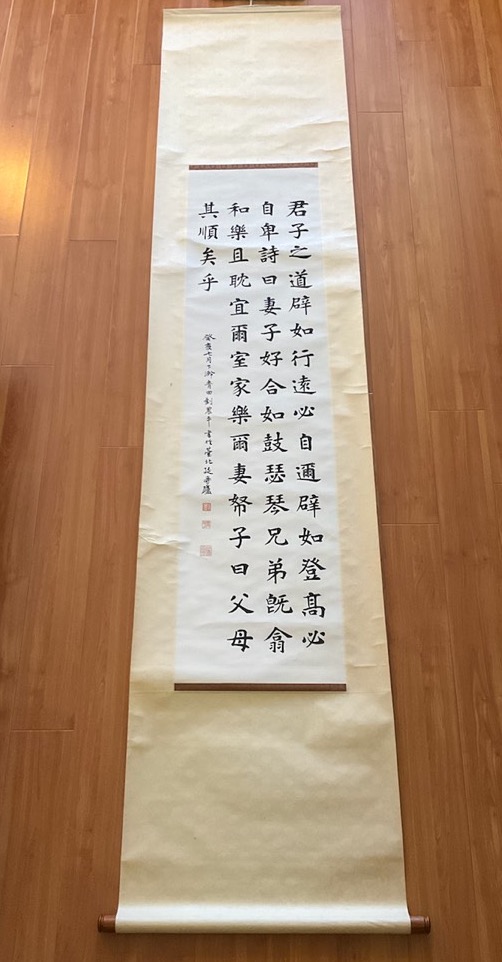 君子之道辟如行遠必自邇辟如登髙必
自卑詩曰妻子好合如鼓瑟琴兄弟既翕
和樂且耽宜爾室家樂爾妻帑子曰父母
其順矣乎
癸亥七月下澣青田劉書於臺北廬